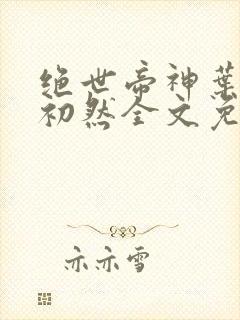 绝世帝神叶
初然全文免
亦亦雪